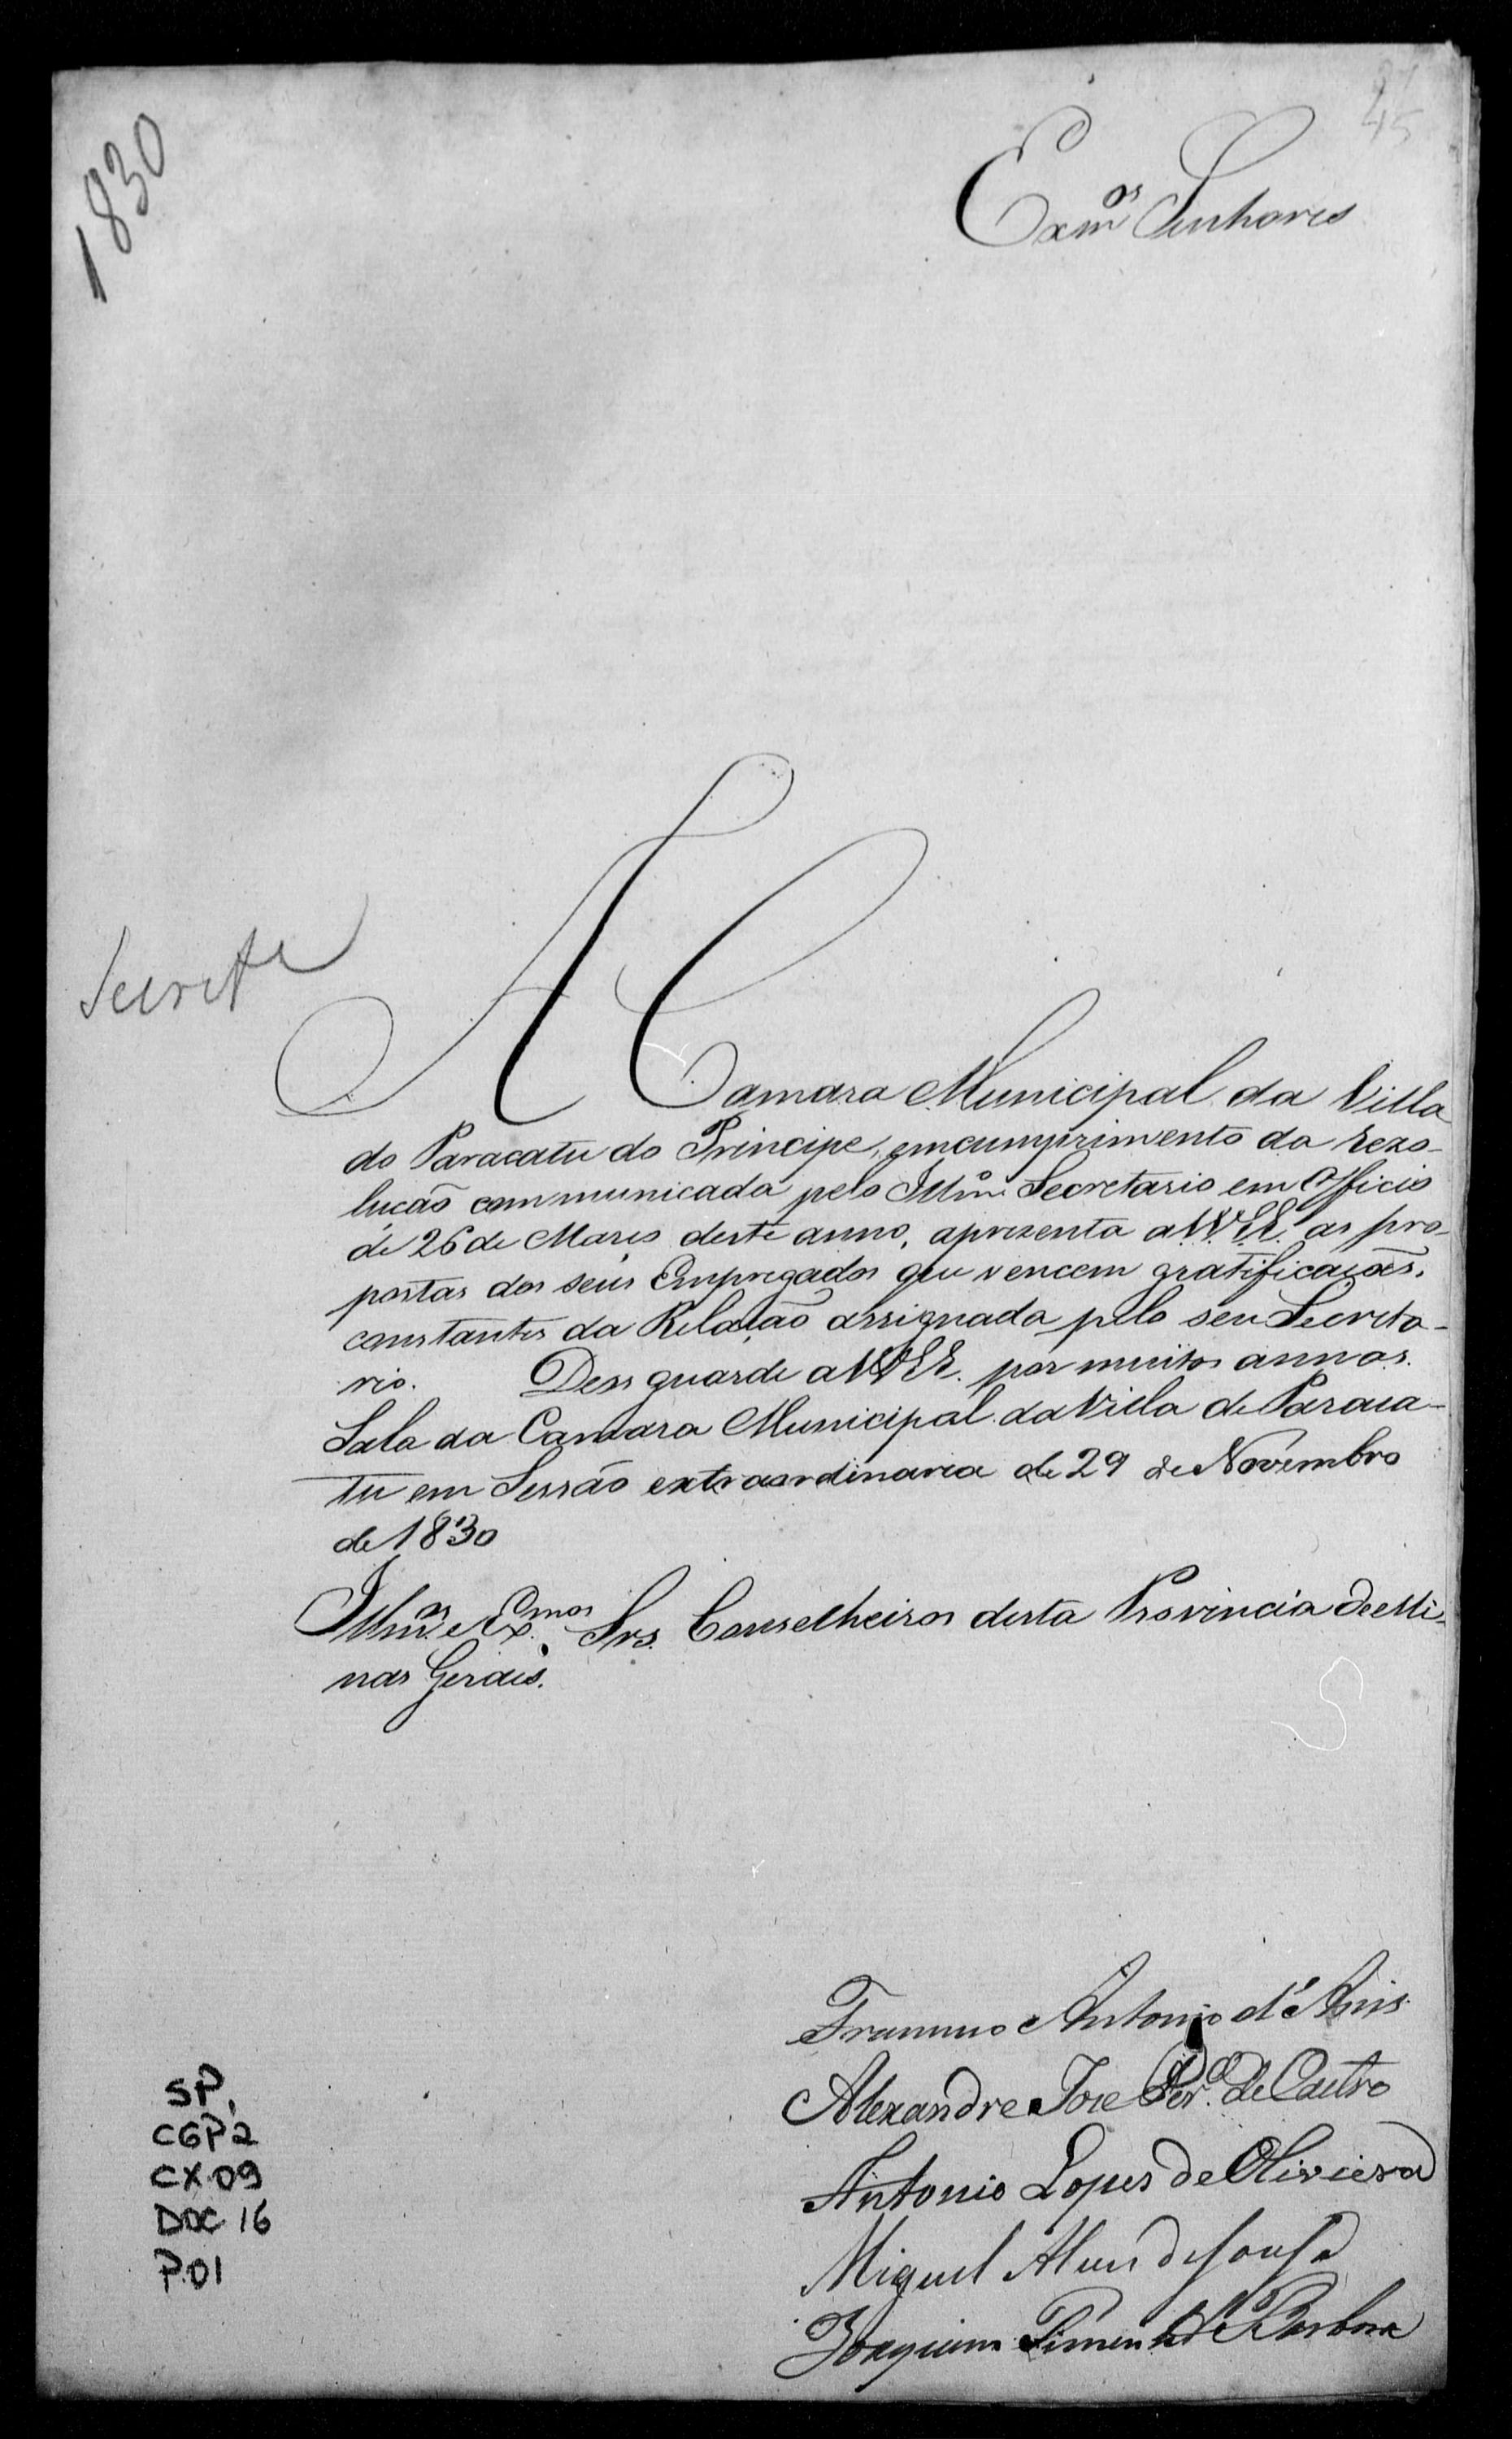 1830
45
Exm.os Senhores
Secret.a
A Camara Municipal da Villa
do Paracatu do Principe, em cumprimento da rezo-
lucaõ communicada pelo Illm.o Secretario em Officio
de 26 de Março deste anno, aprezenta a V.V. E.E. as pro-
postas dos seus Empregados que vencem gratificaçoẽs,
constantes da Relação assignada pelo seu Secreta-
rio. Deos guarde a VV EE. por muitos annos.
Sala da Camara Municipal da Villa de Paraca-
tu em Sessão extraordinaria de 29 de Novembro
de 1830
Illm.os e Ex.mos Srs. Conselheiros desta Provincia de Mi-
nas Geraes.
Antonio d'Assis
Alexandre Joze Per.a de Castro
Antonio Lopes de Oliveira
Miguel Alves de Sousa
Joaquim Pimentel Barbosa
SP.
CGP2
CX.09
DOC 16
P.01